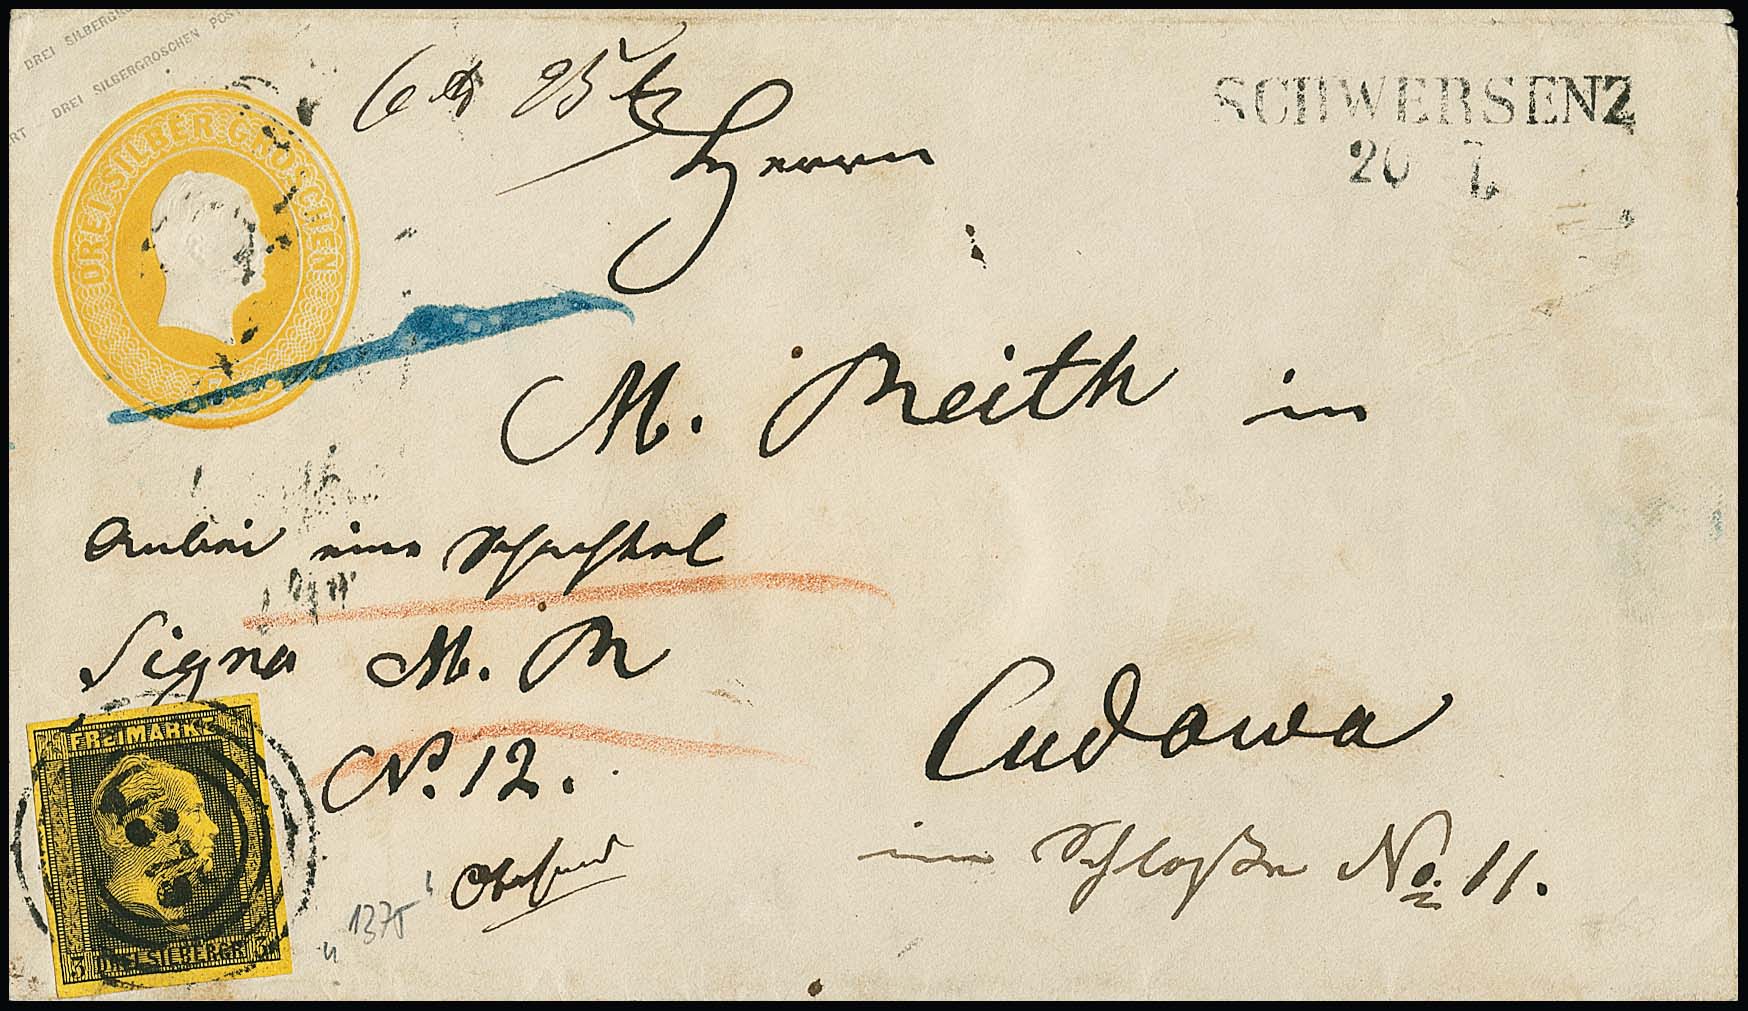 DREI SILBERGROSCHEN
DREI SILBERGROSCHEN POST
DREI SILBER GROSCHEN
SCHWERSENZ
20 7
Herrn
M. Reith in
Anbei eine Schachtel
Signa M. R
No. 12.
Cudowa
im Schloße No. 11.
FREIMARKE
3 DREI SILBERGR. 3
1375